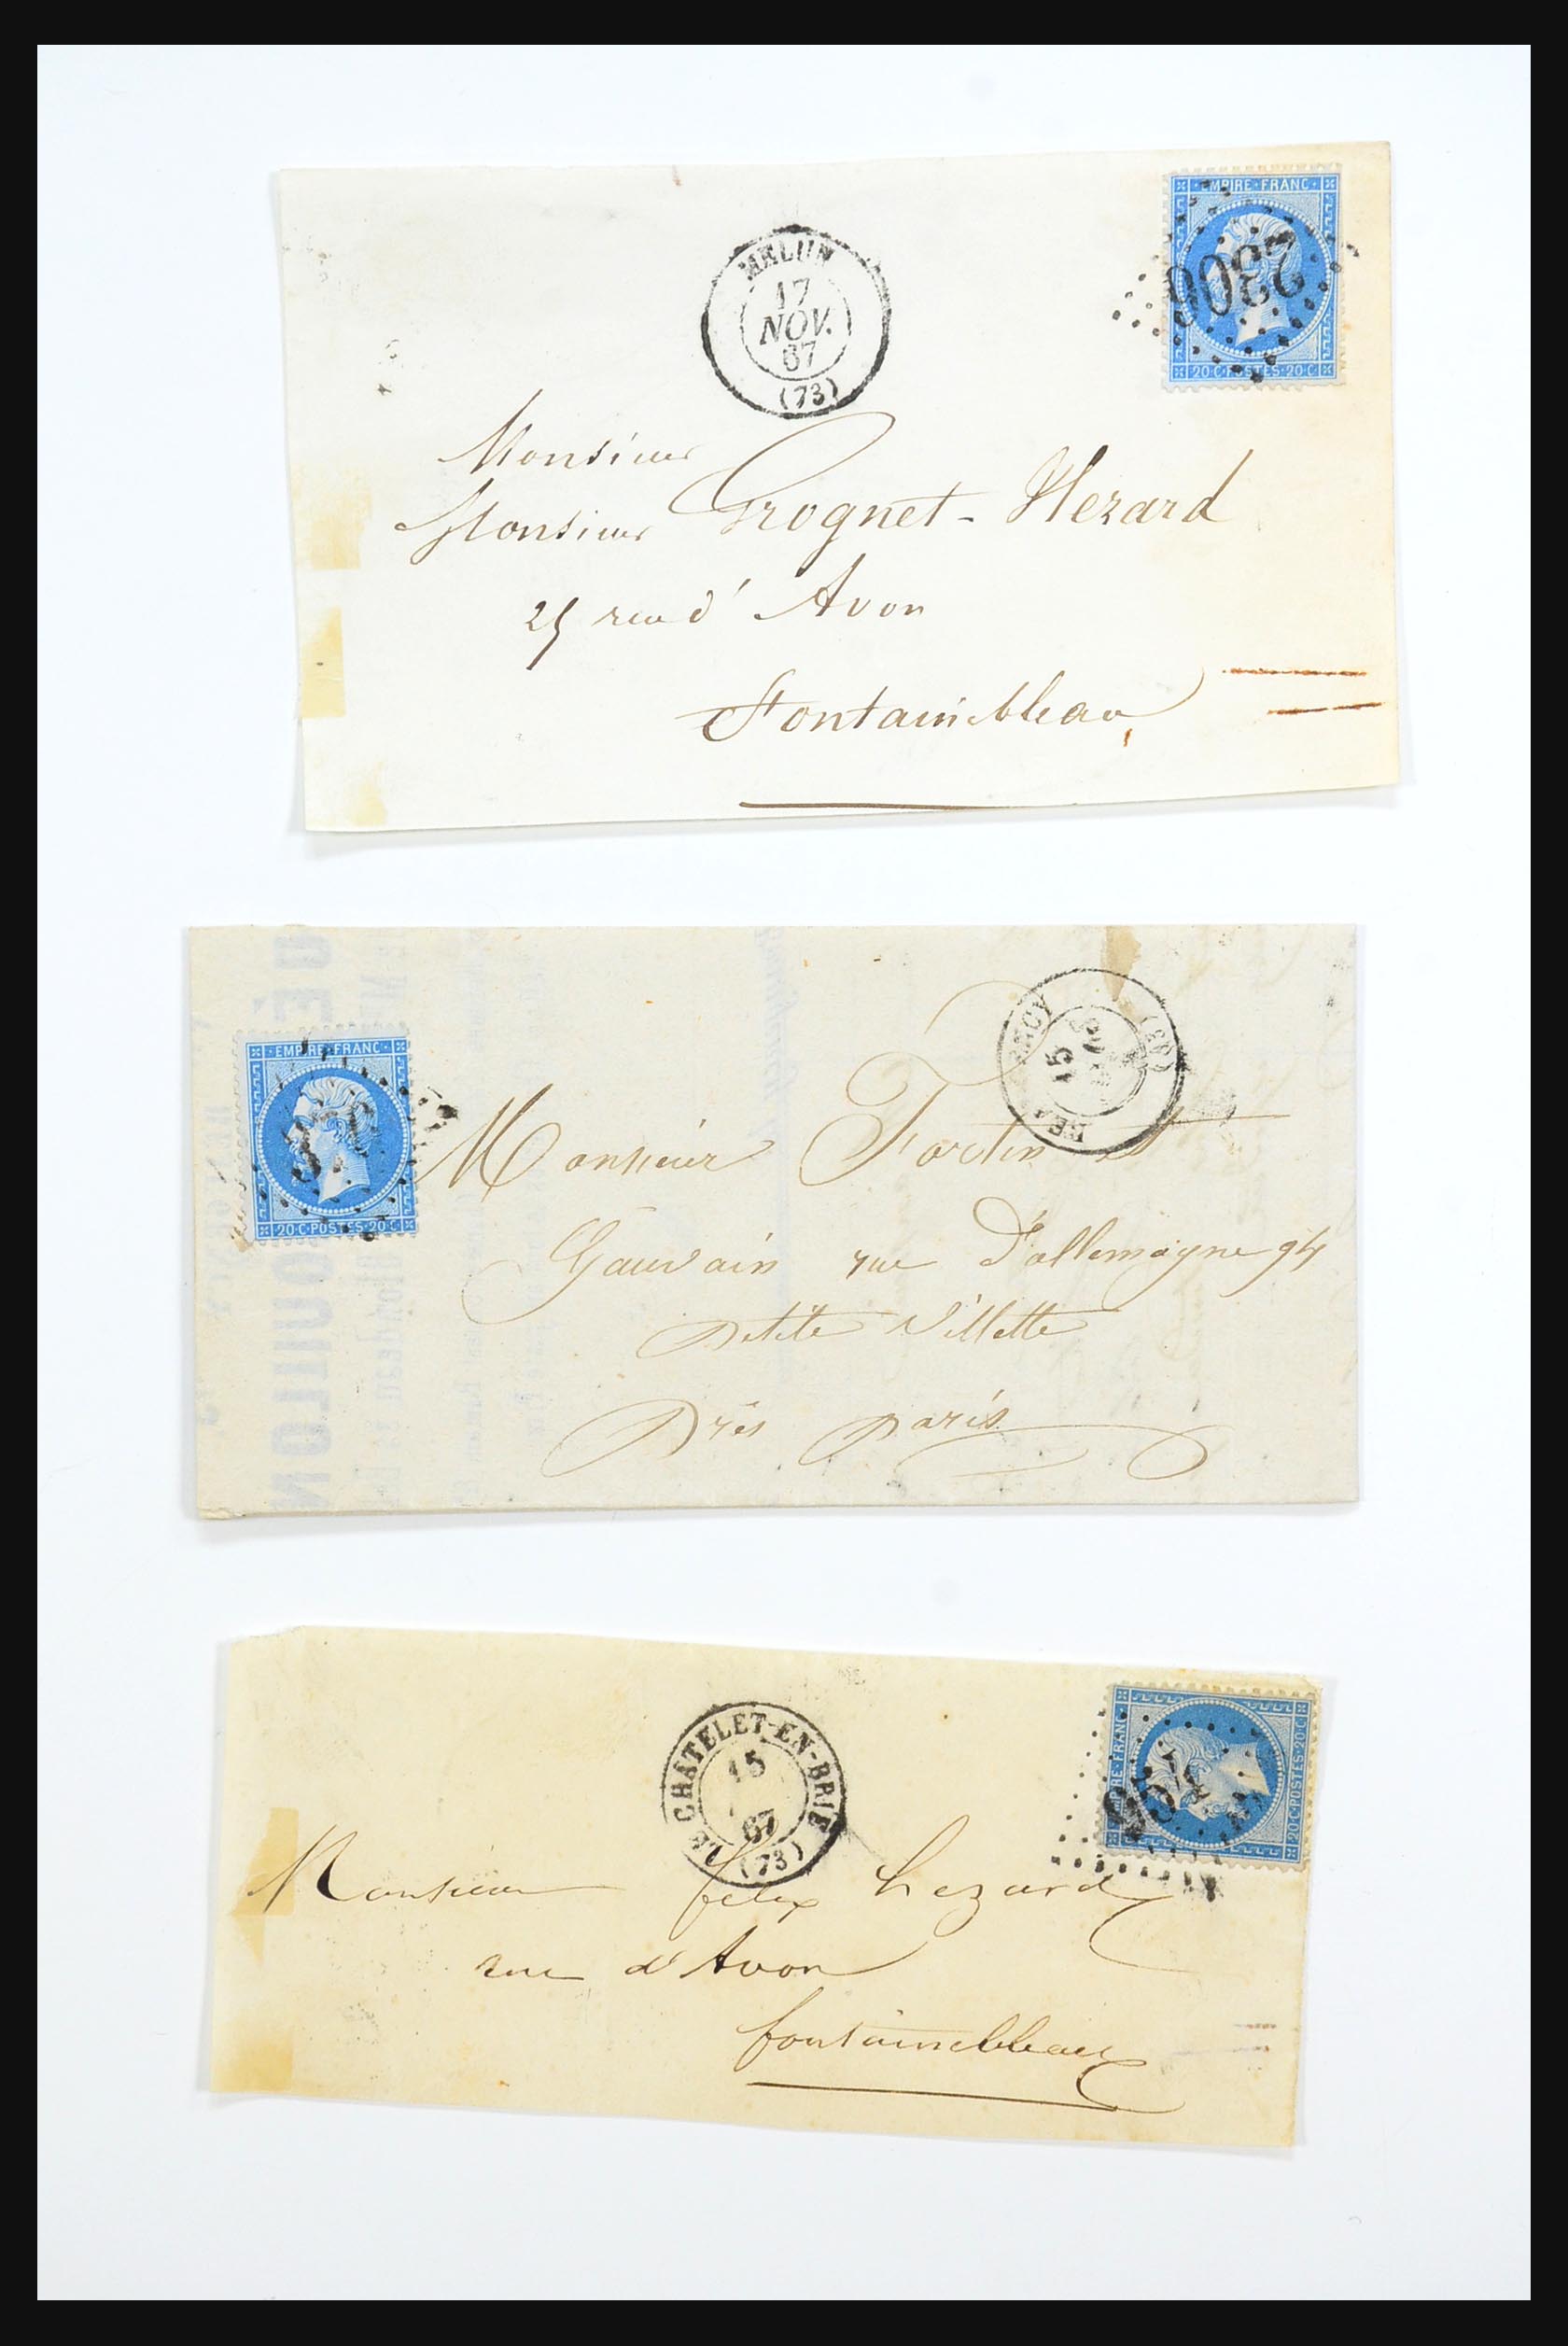 EMPIRE FRANC
2306
20 C POSTES 20 C
MELUN
17
NOV.
67
(73)
Monsieur
Monsieur Grognet-Hezard
25 rue d'Avon
Fontainebleau
EMPIRE FRANC
20 C POSTES 20 C
15
Monsieur Fortin et
Gauvain rue D'allemagne 94
Petite Villette
Près Paris
LE CHATELET-EN-BRIE
15
67
(73)
EMPIRE FRANC
954
20 C POSTES 20 C
Monsieur felix hezard
rue d'Avon
fontainebleau